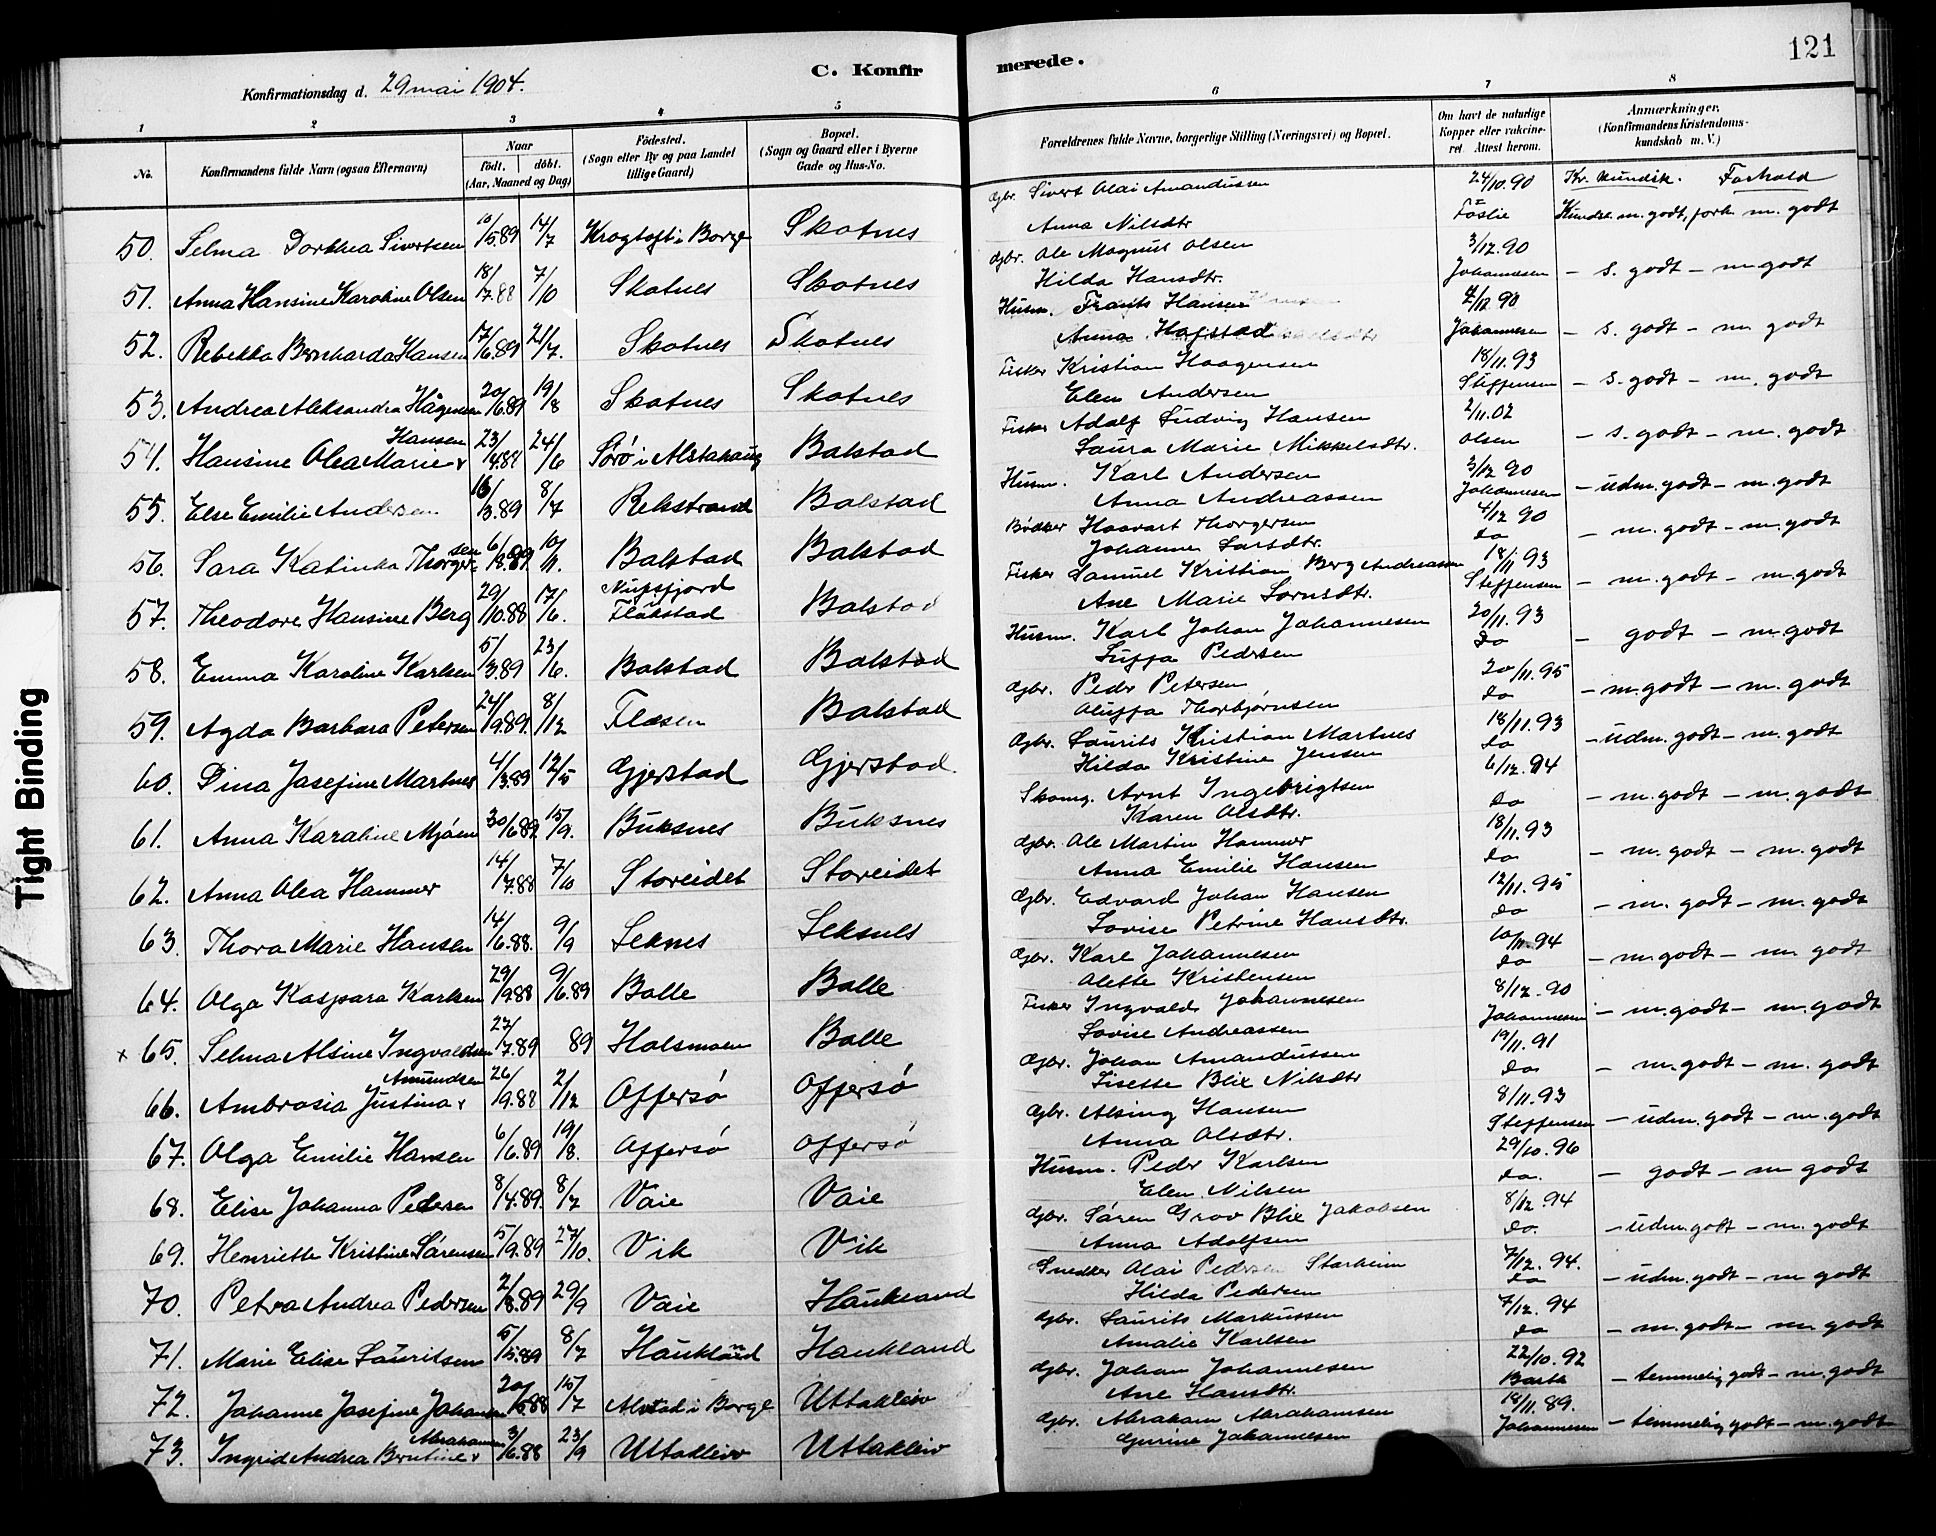 121
C. Konfirmerede.
Konfirmationsdag d. 29 mai 1904.
1 2 3 4 5 6 7 8
No.
Konfirmandens fulde Navn (ogsaa Efternavn)
Naar
födt. döbt.
(Aar, Maaned og Dag)
Födested.
(Sogn eller By og paa Landet
tillige Gaard)
Bopæl.
(Sogn og Gaard eller i Byerne
Gade og Hus-No.
Forældrenes fulde Navne, borgerlige Stilling (Næringsvei) og Bopæl.
Om havt de naturlige
Kopper eller vakcine-
ret. Attest herom.
Anmærkninger.
(Konfirmandens Kristendoms-
kundskab m. V.)
Kr. kundsk. Forhold
50. Selma Dorthea Sivertsen 10/5.89 14/7 Krogtoft i Borge Skotnes Gbr. Sivert Olai Amandussen 24/10.90
Anna Nilsdtr Föslie Kundsk. m. godt, forh. m. godt
51. Anna Hansine Karoline Olsen 18/7.88 7/10 Skotnes Skotnes Gbr. Ole Magnus Olsen 3/12.90
Hilda Hansdtr. Johannesen – s. godt – m. godt
52. Rebekka Bernharda Hansen 17/6.89 21/7. Skotnes Skotnes Husm. Frants Hansen 4/12 90
Anna Hofstad Johannesen – s. godt – m. godt
53. Andrea Aleksandra Hågensen 20/6.89 19/8 Skotnes Skotnes Fisker Kristian Haagensen 18/11.93
Elen Andersen Steffensen – s. godt – m. godt
54. Hansine Olea Marie Hansen 23/4.89 24/6 Sörö i Alstahaug Balstad Fisker Adolf Ludvig Hansen 2/11.02
Laura Marie Mikkelsdtr. Olsen – s. godt – m. godt
55. Else Emilie Andersen 16/3.89 8/7 Rekstrand Balstad Husm. Karl Andersen 3/12 90
Anna Andreassen Johannesen – udm. godt – m. godt
56. Sara Katinka Thorgersen 6/8.89 10/11. Balstad Balstad Bödker Haavart Thorgersen 4/12 90
Johanne Larsdtr. do – m. godt – m. godt
57. Theodore Hansine Berg 29/10.88 17/6. Nufsfjord i Flakstad Balstad Fisker Samuel Kristian Berg Andreassen 18/11 93
Ane Marie Sörnsdtr. Steffensen – m. godt – m. godt
58. Emma Karoline Karlsen 5/3.89 23/6. Balstad Balstad Husm. Karl Johan Johannesen 20/11.93
Suffa Pedersen do – godt – m. godt
59. Agda Barbara Petersen 24/9.89. 8/12 Flæsen Balstad Gbr. Peder Petersen 20/11.95
Aluffa Thorbjørnsen do – m. godt – m. godt
60. Dina Josefine Martnes 4/3.89 12/5 Gjerstad Gjerstad. Gbr. Laurits Kristian Martnes 18/11.93
Hilda Kristine Jensen do – udm. godt – m. godt
61. Anna Karoline Mjöen 30/6.89 15/9. Buksnes Buksnes Skomg. Arnt Ingebrigtsen 6/12.94
Karen Olsdtr. do – m. godt – m. godt
62. Anna Olea Hammer 14/7.88 7/10 Storeidet Storeidet Gbr. Ole Martin Hammer 18/11.93
Anna Emilie Hansen do – m. godt – m. godt
63. Thora Marie Hansen 14/6.88. 9/9 Leknes Leknes Gbr. Edvard Johan Hansen 12/11.95
Lovise Petrine Hansdtr. do – m. godt – m. godt
64. Olga Kaspara Karlsen 29/9.88 9/6.89 Bolle Bolle Gbr. Karl Johannesen 10/11.94
Alette Kristensen do – m. godt – m. godt
x 65. Selma Alsine Ingvaldsen 27/7.89 89 Holsmoen Bolle Fisker Ingvald Johannesen 8/12.90
Lovise Andreassen Johannesen – m. godt – m. godt
66. Ambrosia Justina Amundsen 26/9.88 2/12 Offersö Offersö Gbr. Johan Amandussen 19/11.91
Lisette Blix Nilsdtr do – m. godt – m. godt
67. Olga Emilie Hansen 6/6.89 19/8. Offersö Offersö Gbr. Alsing Hansen 8/11.93
Anna Olsdtr. Steffensen – udm. godt – m. godt
68. Elise Johanna Pedersen 8/4.89. 8/7 Vaie Vaie Husm. Peder Karlsen 29/10.96
Elen Nilsen do. – godt – m godt
69. Henriette Kristine Sörensen 5/9.89 27/10. Vik Vik Gbr. Sören Grov Blix Jakobsen 8/12.94
Anna Adolfsen do. – udm. godt – m. godt
70. Petra Andrea Pedersen 2/8.89 29/9 Vaie Haukland Snedker Olai Pedersen Starheim 7/12.94.
Hilda Pedersen do – udm. godt – m godt
71. Marie Elise Lauritsen 5/5.89 8/7 Haukland Haukland Gbr. Laurits Markussen 7/12.94
Amalie Karlsen do – m. godt – m. godt
72. Johanne Josefine Johansen 20/5.88 15/7 Alstad i Borge Uttakleiv Gbr. Johan Johannesen 22/10.92
Ane Hansdtr. Barth – temmelig godt – m. godt
73. Ingrid Andrea Berntine Abrahamsen 3/6.88 23/9 Uttakleiv Uttakleiv Gbr. Abraham Abrahamsen 14/11.89.
Gurine Johannesen Johannesen – temmelig godt – m. godt
Tight Binding